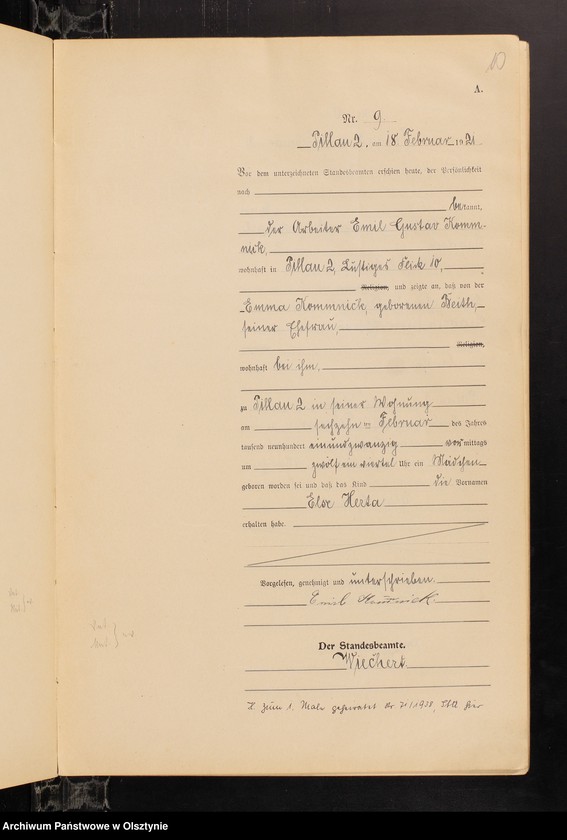 10
A.
Nr. 9.
Pillau 2. am 18 Februar 1921
Vor dem unterzeichneten Standesbeamten erschien heute, der Persönlichkeit
nach
bekannt,
der Arbeiter Emil Gustav Komm-
nick,
wohnhaft in Pillau 2, Lustiges Flick 10,
Religion, und zeigte an, daß von der
Emma Kommnick, geborenen
seiner Ehefrau,
Religion,
wohnhaft bei ihm,
zu Pillau 2 in seiner Wohnung
am sechzehn ten Februar des Jahres
tausend neunhundert einundzwanzig vormittags
um zwölf ein viertel Uhr ein Mädchen
geboren worden sei und daß das Kind die Vornamen
Herta
erhalten habe.
Vorgelesen, genehmigt und unterschrieben.
Emil Kommnick.
Der Standesbeamte.
Wiechert
zum 1. Male geheiratet Nr. 1938, StA
Archiwum Państwowe w Olsztynie